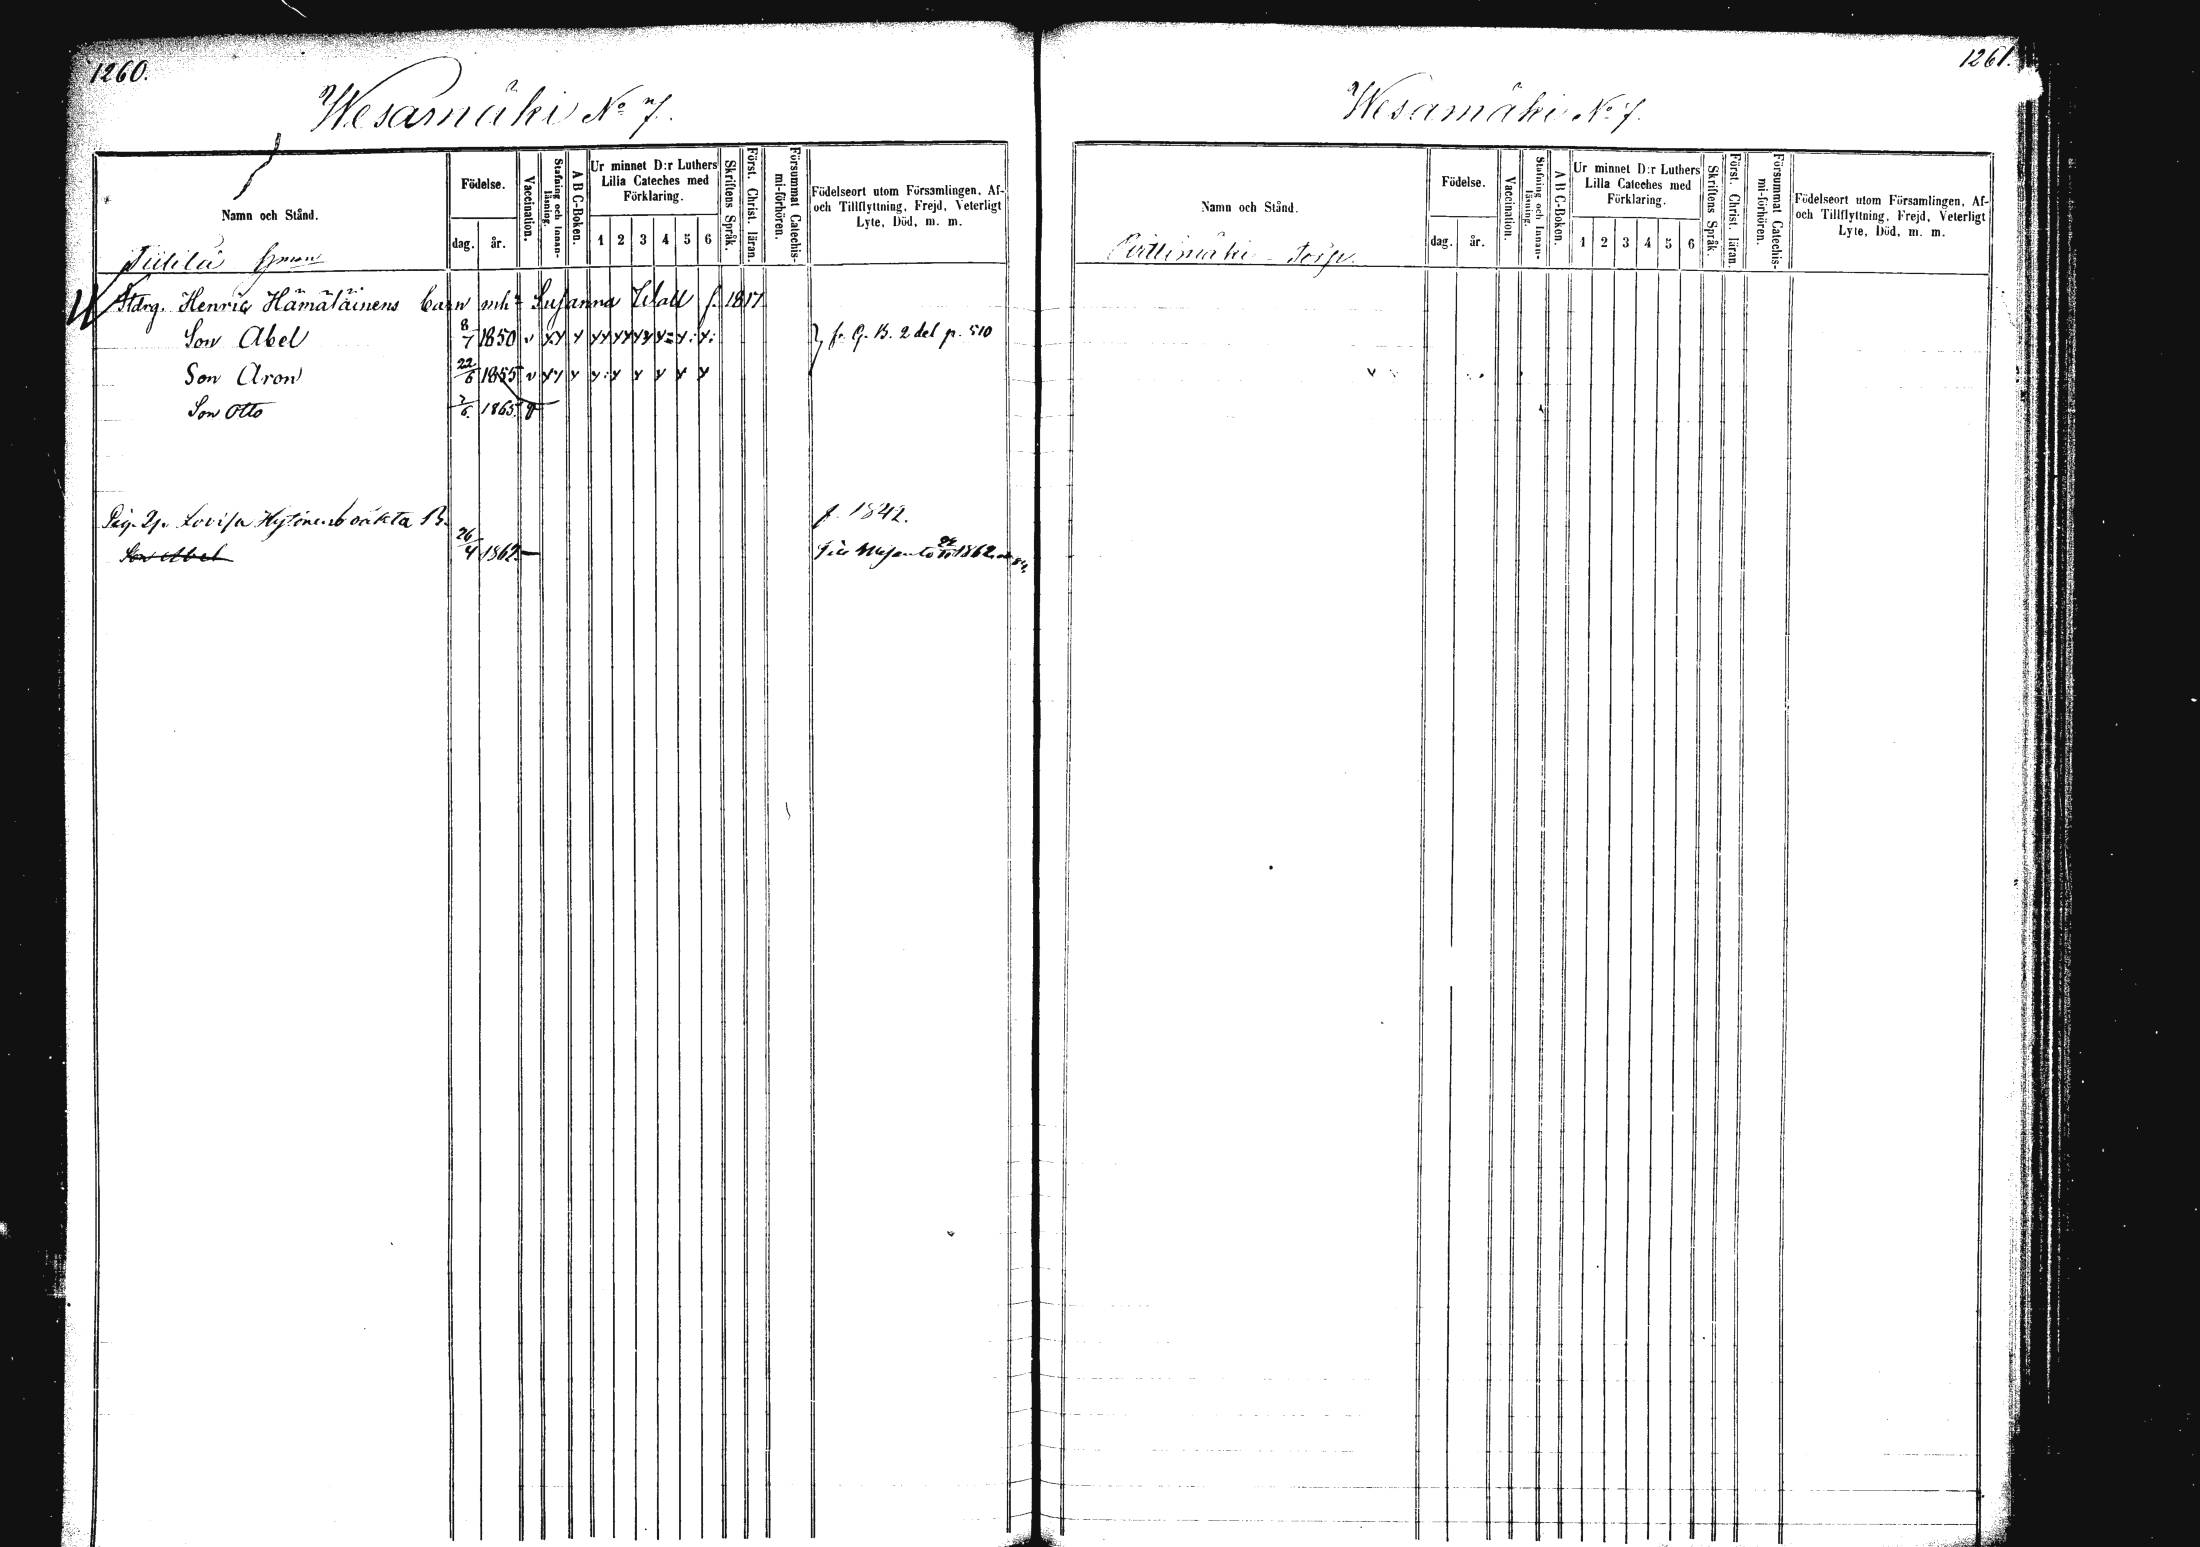 1260.
Wesamäki No 7.
Namn och Stånd.
Födelse.
dag.
år.
Vaccination.
Stafning och Innanläsning.
A B C-Boken.
Ur minnet D:r Luthers
Lilla Cateches med
Förklaring.
1 2 3 4 5 6
Skriftens Språk.
Först. Christ. läran.
Försummat Catechis-
mi-förhören.
Födelseort utom Församlingen, Af-
och Tillflyttning, Frejd, Veterligt
Lyte, Död, m. m.
Henric Hämäläinens barn mh: Susanna Wall f. 1817
Son Abel 8/7 1850 v } fr. G. B. 2 del p. 510
Son Aron 22/6 1855 v
Son Otto 1865
Lovisa Hytönens oäkta B. f. 1842.
Son Abel 26/4 1862. —
1261.
Wesamäki No 7.
Namn och Stånd.
Födelse.
dag.
år.
Vaccination.
Stafning och Innanläsning.
A B C-Boken.
Ur minnet D:r Luthers
Lilla Cateches med
Förklaring.
1 2 3 4 5 6
Skriftens Språk.
Först. Christ. läran.
Försummat Catechis-
mi-förhören.
Födelseort utom Församlingen, Af-
och Tillflyttning, Frejd, Veterligt
Lyte, Död, m. m.
Pirttimäki – Torp.